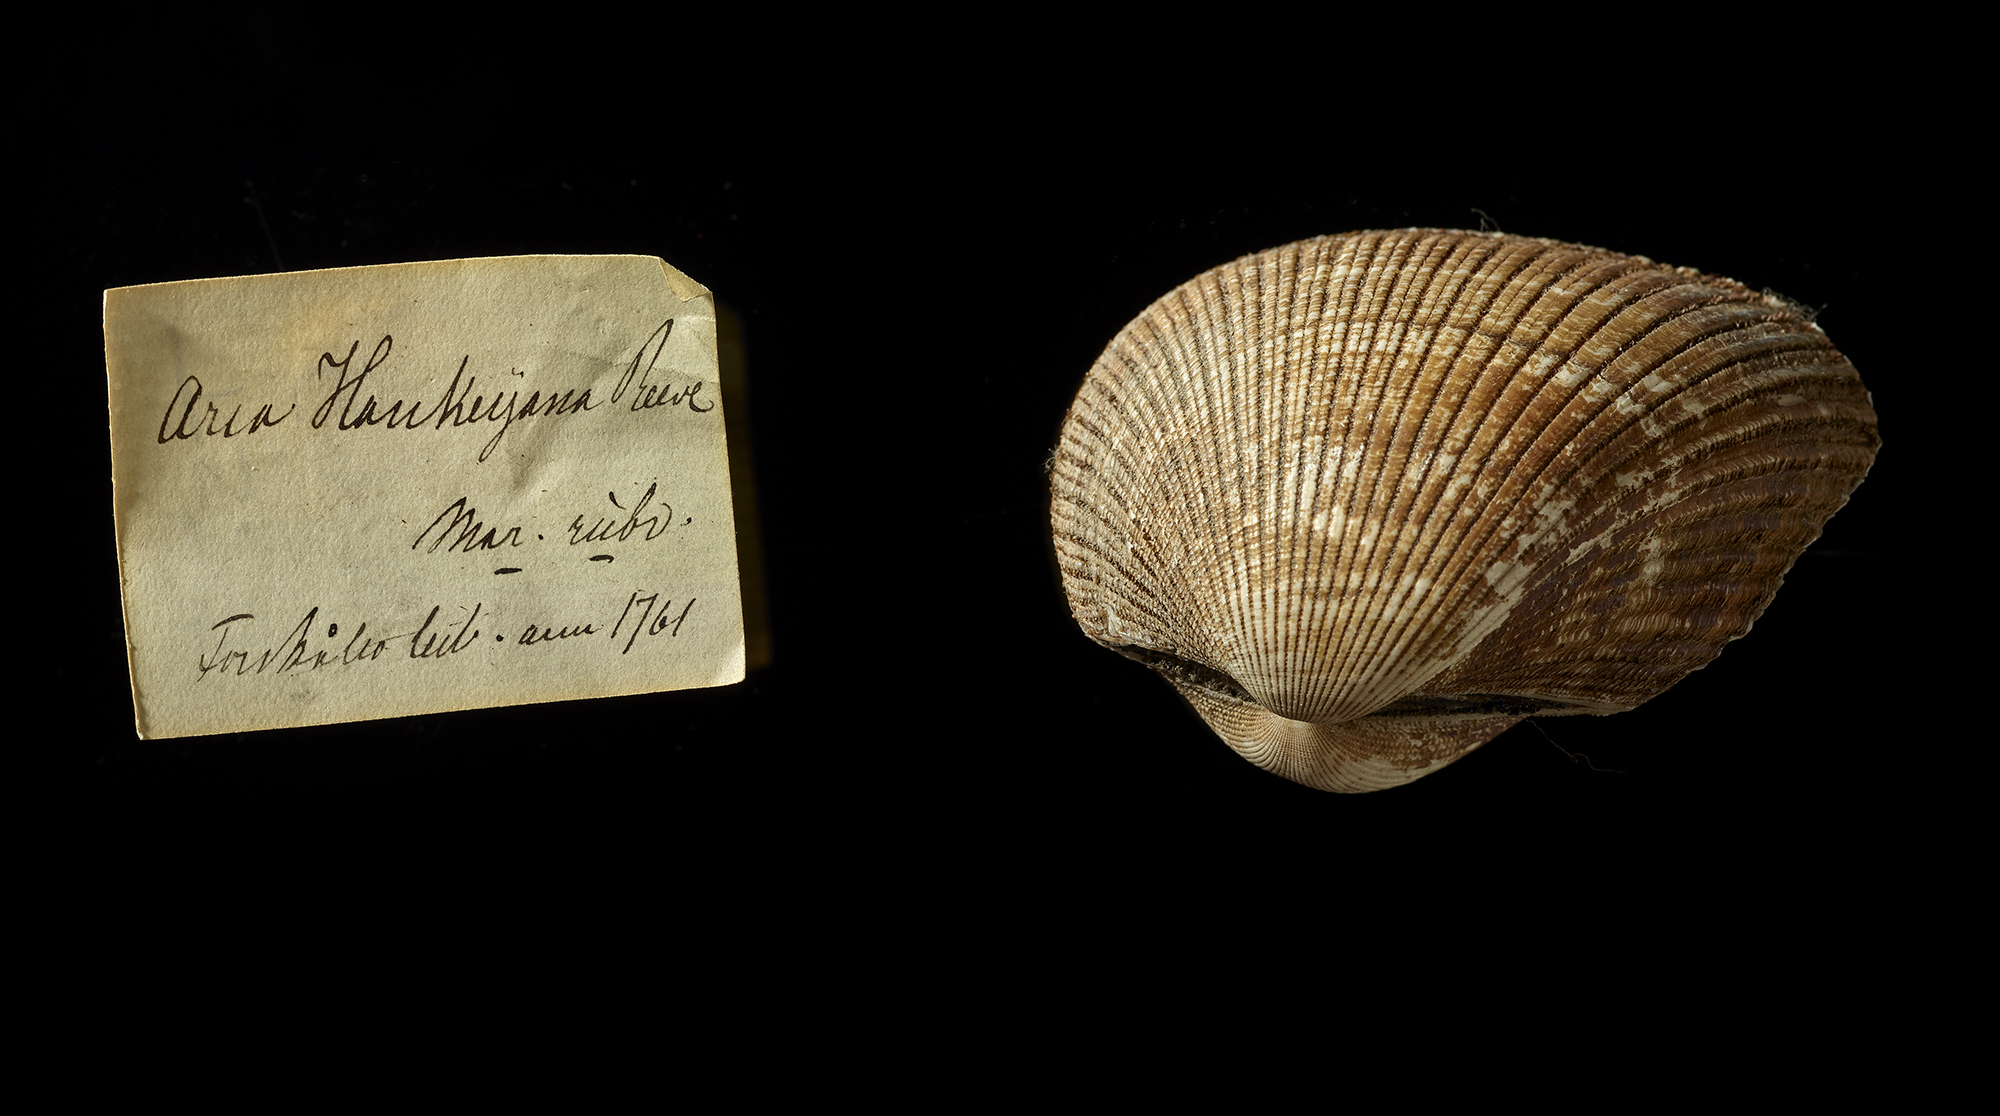 Arca Hankeyana Reeve
Mar. rubr.
Forskål leit. ann 1761